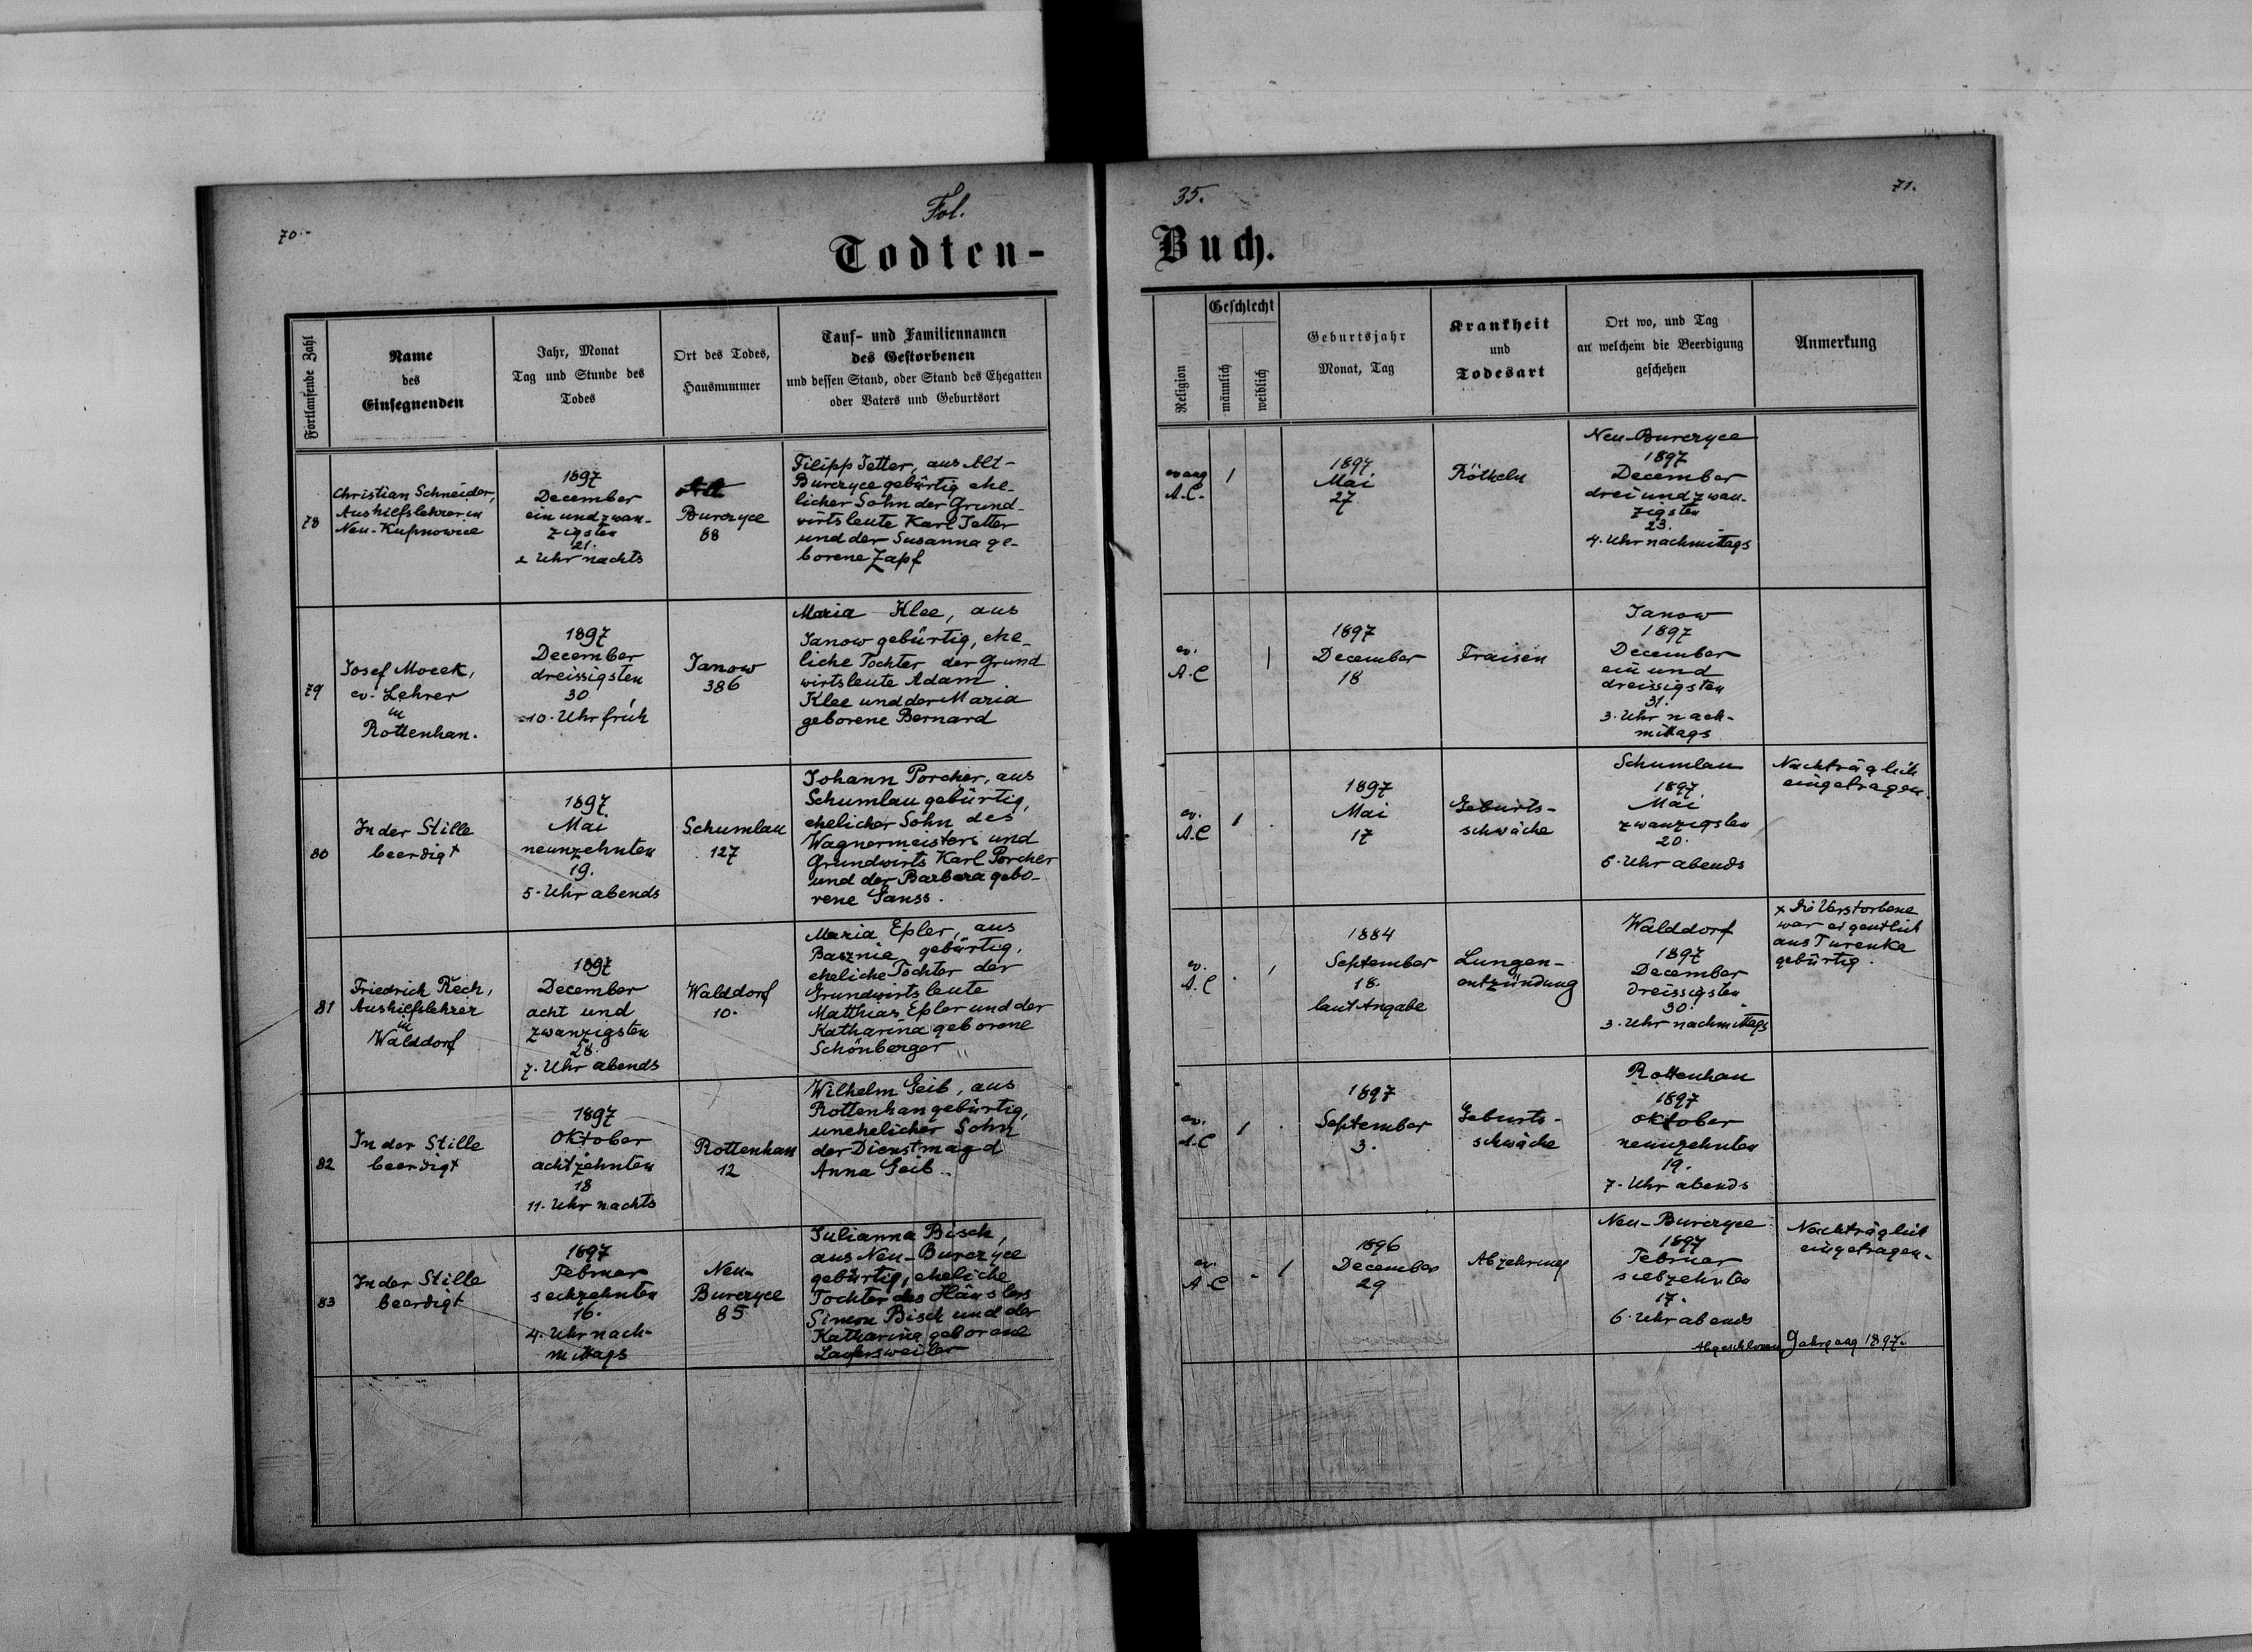 70.-
Fol.
35.
71.
Todten-
Buch.
Fortlaufende Zahl
Name
des
Einsegnenden
Jahr, Monat
Tag und Stunde des
Todes
Ort des Todes,
Hausnummer
Tauf- und Familiennamen
des Gestorbenen
und dessen Stand, oder Stand des Ehegatten
oder Vaters und Geburtsort
Religion
Geschlecht
männlich
weiblich
Geburtsjahr
Monat, Tag
Krankheit
und
Todesart
Ort wo, und Tag
an welchem die Beerdigung
geschehen
Anmerkung
78
Christian Schneider,
Aushilfslehrer in
Neu-Kupnowice
1897
December
ein und zwan-
zigsten
21.
2 Uhr nachts
Alt
Burczyce
68
Filipp Jetter, aus Alt-
Burczyce gebürtig ehe-
licher Sohn der Grund-
wirtsleute Karl Jetter
und der Susanna ge-
borene Zapf
evang
A.C.
1
1897.
Mai
27.
Rötheln
Neu-Burczyce
1897
December
drei und zwan-
zigsten
23.
4. Uhr nachmittags
79
Josef Mocek,
ev. Lehrer
in
Rottenhan.
1897
December
dreissigsten
30
10. Uhr früh
Janow
386
Maria Klee, aus
Janow gebürtig, ehe-
liche Tochter der Grund
wirtsleute Adam
Klee und der Maria
geborene Bernard
ev.
A.C
1
1897
December
18
Fraisen
Janow
1897
December
ein und
dreissigsten
31.
3. Uhr nach-
mittags
80
In der Stille
beerdigt
1897.
Mai
neunzehnten
19.
5. Uhr abends
Schumlau
127
Johann Porcher, aus
Schumlau gebürtig,
ehelicher Sohn des
Wagnermeisters und
Grundwirts Karl Porcher
und der Barbara gebo-
rene Ganss.
ev.
A.C
1
1897
Mai
17
Geburts-
schwäche
Schumlau
1897.
Mai
zwanzigsten
20.
6. Uhr abends
Nachträglich
eingetragen.
81
Friedrich Rech,
Aushilfslehrer
in
Walddorf
1897
December
acht und
zwanzigsten
28.
7. Uhr abends
Walddorf
10.
Maria Epler, aus
Basznie gebürtig,
eheliche Tochter der
Grundwirtsleute
Matthias Epler und der
Katharina geborene
Schönberger
ev.
A.C
1
1884
September
18.
laut Angabe
Lungen-
entzündung
Walddorf
1897
December
dreissigsten
30.
3. Uhr nachmittags
x Die Verstorbene
war eigentlich
aus Turenka
gebürtig.
82
In der Stille
beerdigt
1897
Oktober
achtzehnten
18
11. Uhr nachts
Rottenhan
12
Wilhelm Geib, aus
Rottenhan gebürtig,
unehelicher Sohn
der Dienstmagd
Anna Geib.
ev.
A.C
1
1897
September
3.
Geburts-
schwäche
Rottenhan
1897
Oktober
neunzehnten
19.
7. Uhr abends
83
In der Stille
beerdigt
1897
Februar
sechzehnten
16.
4. Uhr nach-
mittags
Neu-
Burczyce
85
Julianna Bisch,
aus Neu-Burczyce
gebürtig, eheliche
Tochter des Häuslers
Simon Bisch und der
Katharina geborene
Laufersweiler
ev.
A.C
1
1896
December
29
Abzehrung
Neu-Burczyce
1897
Februar
siebzehnten
17.
6. Uhr abends
Nachträglich
eingetragen.
Abgeschlossen Jahrgang 1897.